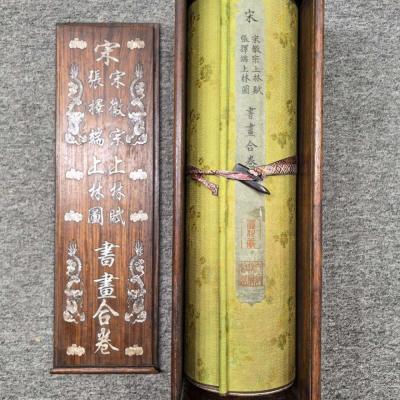 宋
宋徽宗上林賦
張擇端上林圖
書畫合卷
宋
宋徽宗上林賦
張擇端上林圖
書畫合卷